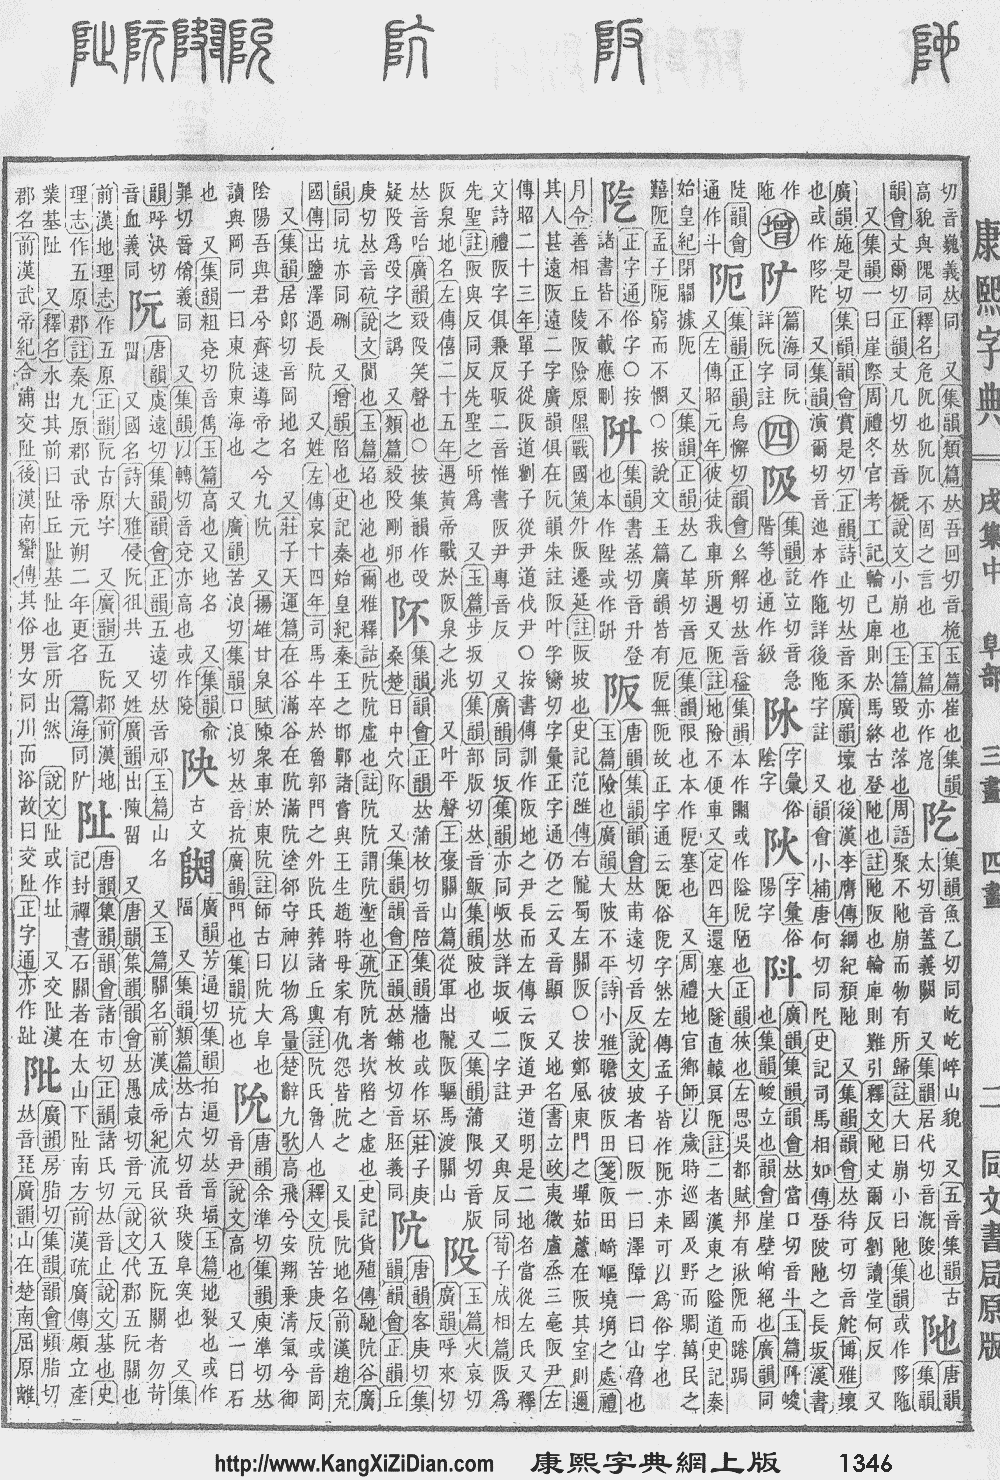 康熙字典 戌集中 阜部 三畫 四畫 二 同文書局原版
切音巍義𠀤同 又集韻類篇𠀤吾回切音桅玉篇崔也集韻
高貌與隗同釋名危阢也阢阢不固之言也 玉篇亦作峞
阣
集韻魚乙切同屹屹崪山貌 又五音集韻古
太切音蓋義闕 又集韻居代切音溉陵也
阤
唐韻
集韻
韻會丈爾切正韻丈几切𠀤音褫說文小崩也玉篇毀也落也周語聚不阤崩而物有所歸註大曰崩小曰阤集韻或作陊陁
又集韻一曰崖際周禮冬官考工記輪已庳則於馬終古登阤也註阤阪也輪庳則難引釋文阤丈爾反劉讀堂何反 又
廣韻施是切集韻韻會賞是切正韻詩止切𠀤音豕廣韻壞也後漢李膺傳綱紀頹阤 又集韻韻會𠀤待可切音舵博雅壞
也或作陊陀 又集韻演爾切音迆本作陁詳後陁字註 又韻會小補唐何切同陀史記司馬相如傳登陂阤之長坂漢書
作
陁
增
篇海同阬
詳阬字註
四
集韻訖立切音急
階等也通作級
阥
字彙俗
陰字
阦
字彙俗
陽字
阧
廣韻集韻韻會𠀤當口切音斗玉篇阧峻
也集韻峻立也韻會崖壁峭絕也廣韻同
陡韻會
通作斗
阨
集韻正韻烏懈切韻會幺解切𠀤音隘集韻本作或作隘阸陋也正韻狹也左思吳都賦邦有湫阨而踡跼
又左傳昭元年彼徒我車所遇又阨註地險不便車又定四年還塞大隧直轅冥阨註二者漢東之隘道史記秦
始皇紀閉關據阨 又集韻正韻𠀤乙革切音厄集韻限也本作阸塞也 又周禮地官鄉師以歲時巡國及野而賙萬民之
囏阨孟子阨窮而不憫○按說文玉篇廣韻皆有阸無阨故正字通云阨俗阸字然左傳孟子皆作阨亦未可以為俗字也
正字通俗字○按
諸書皆不載應刪
阩
集韻書蒸切音升登
也本作陞或作
阪
唐韻集韻韻會𠀤甫遠切音反說文坡者曰阪一曰澤障一曰山脅也
玉篇險也廣韻大陂不平詩小雅瞻彼阪田箋阪田崎嶇境埆之處禮
月令善相丘陵阪險原隰戰國策外阪遷延註阪坡也史記范雎傳右隴蜀左關阪○按鄭風東門之墠茹藘在阪其室則邇
其人甚遠阪遠二字廣韻俱在阮韻朱註詩阪叶孚臠切字彙正字通仍之云又音顯 又地名書立政夷微盧烝三亳阪尹左
傳昭二十三年單子從阪道劉子從尹道伐尹○按書傳訓作阪地之尹長而左傳云阪道尹道明是二地名當從左氏又釋
文詩禮阪字俱兼反二音惟書阪尹專音反 又廣韻同坂集韻亦同岅𠀤詳坂岅二字註 又與反同荀子成相篇阪為
先聖註阪與反同反先聖之所為 又玉篇步坂切集韻部版切𠀤音飯集韻陂也 又集韻蒲限切音版
阪泉地名左傳僖二十五年遇黃帝戰於阪泉之兆 又叶平聲王褒關山篇從軍出隴阪驅馬渡關山
玉篇火哀切
廣韻呼來切
𠀤音咍廣韻笑聲也○按集韻作
疑為字之譌 又類篇剛卯也
阫
集韻韻會正韻𠀤蒲枚切音陪集韻牆也或作坏莊子庚
桑楚日中穴阫 又集韻韻會正韻𠀤鋪枚切音胚義同
阬
唐韻客庚切集
韻韻會正韻丘
庚切𠀤音硜說文閬也玉篇埳也池也爾雅釋詁阬阬虛也註阬阬謂阬壍也疏阬阬者坎陷之虛也史記貨殖傳馳阬谷廣
韻同坑亦同硎 又增韻陷也史記秦始皇紀秦王之邯鄲諸嘗與王生趙時母家有仇怨皆阬之 又長阬地名前漢趙充
國傳出鹽澤過長阬 又姓左傳哀十四年司馬牛卒於魯郭門之外阬氏葬諸丘輿註阬氏魯人也釋文阬苦庚反或音岡
又集韻居郎切音岡地名 又莊子天運篇在谷滿谷在阬滿阬塗郤守神以物為量楚辭九歌高飛兮安翔乘清氣兮御
陰陽吾與君兮齊速導帝之兮九阬 又揚雄甘泉賦陳衆車於東阬註師古曰阬大阜也
讀與岡同一曰東阬東海也 又廣韻苦浪切集韻口浪切𠀤音抗廣韻門也集韻坑也
阭
唐韻余準切集韻庾準切𠀤
音尹說文高也 又一曰石
也 又集韻粗兗切音雋玉篇高也又地名 又集韻俞
罪切音義同 又集韻以轉切音兗亦高也或作
古文
廣韻芳逼切集韻拍逼切𠀤音堛玉篇地裂也或作
又集韻類篇𠀤古穴切音玦陵阜突也 又集
韻呼決切
音血義同
阮
唐韻虞遠切集韻韻會正韻五遠切𠀤音邧玉篇山名 又玉篇關名前漢成帝紀流民欲入五阮關者勿苛
畱 又國名詩大雅侵阮徂共 又姓廣韻出陳留 又唐韻集韻韻會𠀤愚袁切音元說文代郡五阮關也
前漢地理志作五原正韻阮古原字 又廣韻五阮郡前漢地
理志作五原郡註秦九原郡武帝元朔二年更名 篇海同
阯
唐韻集韻韻會諸市切正韻諸氏切𠀤音止說文基也史
記封禪書石閭者在太山下阯南方前漢疏廣傳頗立產
業基阯 又釋名水出其前曰阯丘阯基阯也言所出然 說文阯或作址 又交阯漢
郡名前漢武帝紀合浦交阯後漢南蠻傳其俗男女同川而浴故曰交阯正字通亦作趾
阰
廣韻房脂切集韻韻會頻脂切
𠀤音琵廣韻山在楚南屈原離
http://www.KangXiZiDian.com 康熙字典網上版 1346